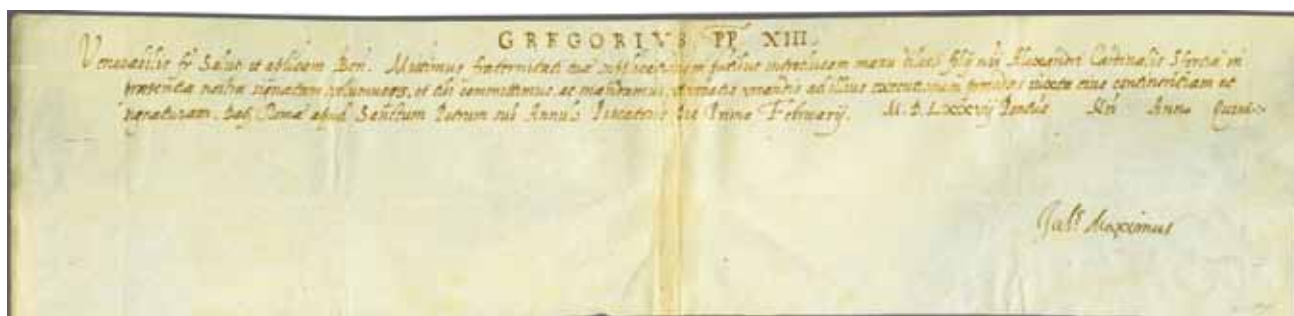 GREGORIVS PP XIII.
Venerabilis fr Salut et aplicam Ben. Mittimus fraternitati tuae supplicationem manu dilecti filij nri Alexandri Cardinalis Sfortiae in
praesentia nostra signatam volumusq, et tibi committimus ac mandamus ad illius executionem procedas iuxta eius continentiam et
signaturam. Dat. Romae apud Sanctum Petrum sub Annulo Piscatoris die Prima Februarij. Pontus Nri Anno
Maximus